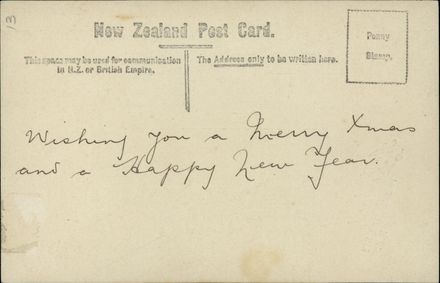 13
New Zealand Post Card.
This space may be used for communication
in N.Z. or British Empire.
The Address only to be written here.
Penny
Stamp.
Wishing you a Merry Xmas
and a Happy New Year.